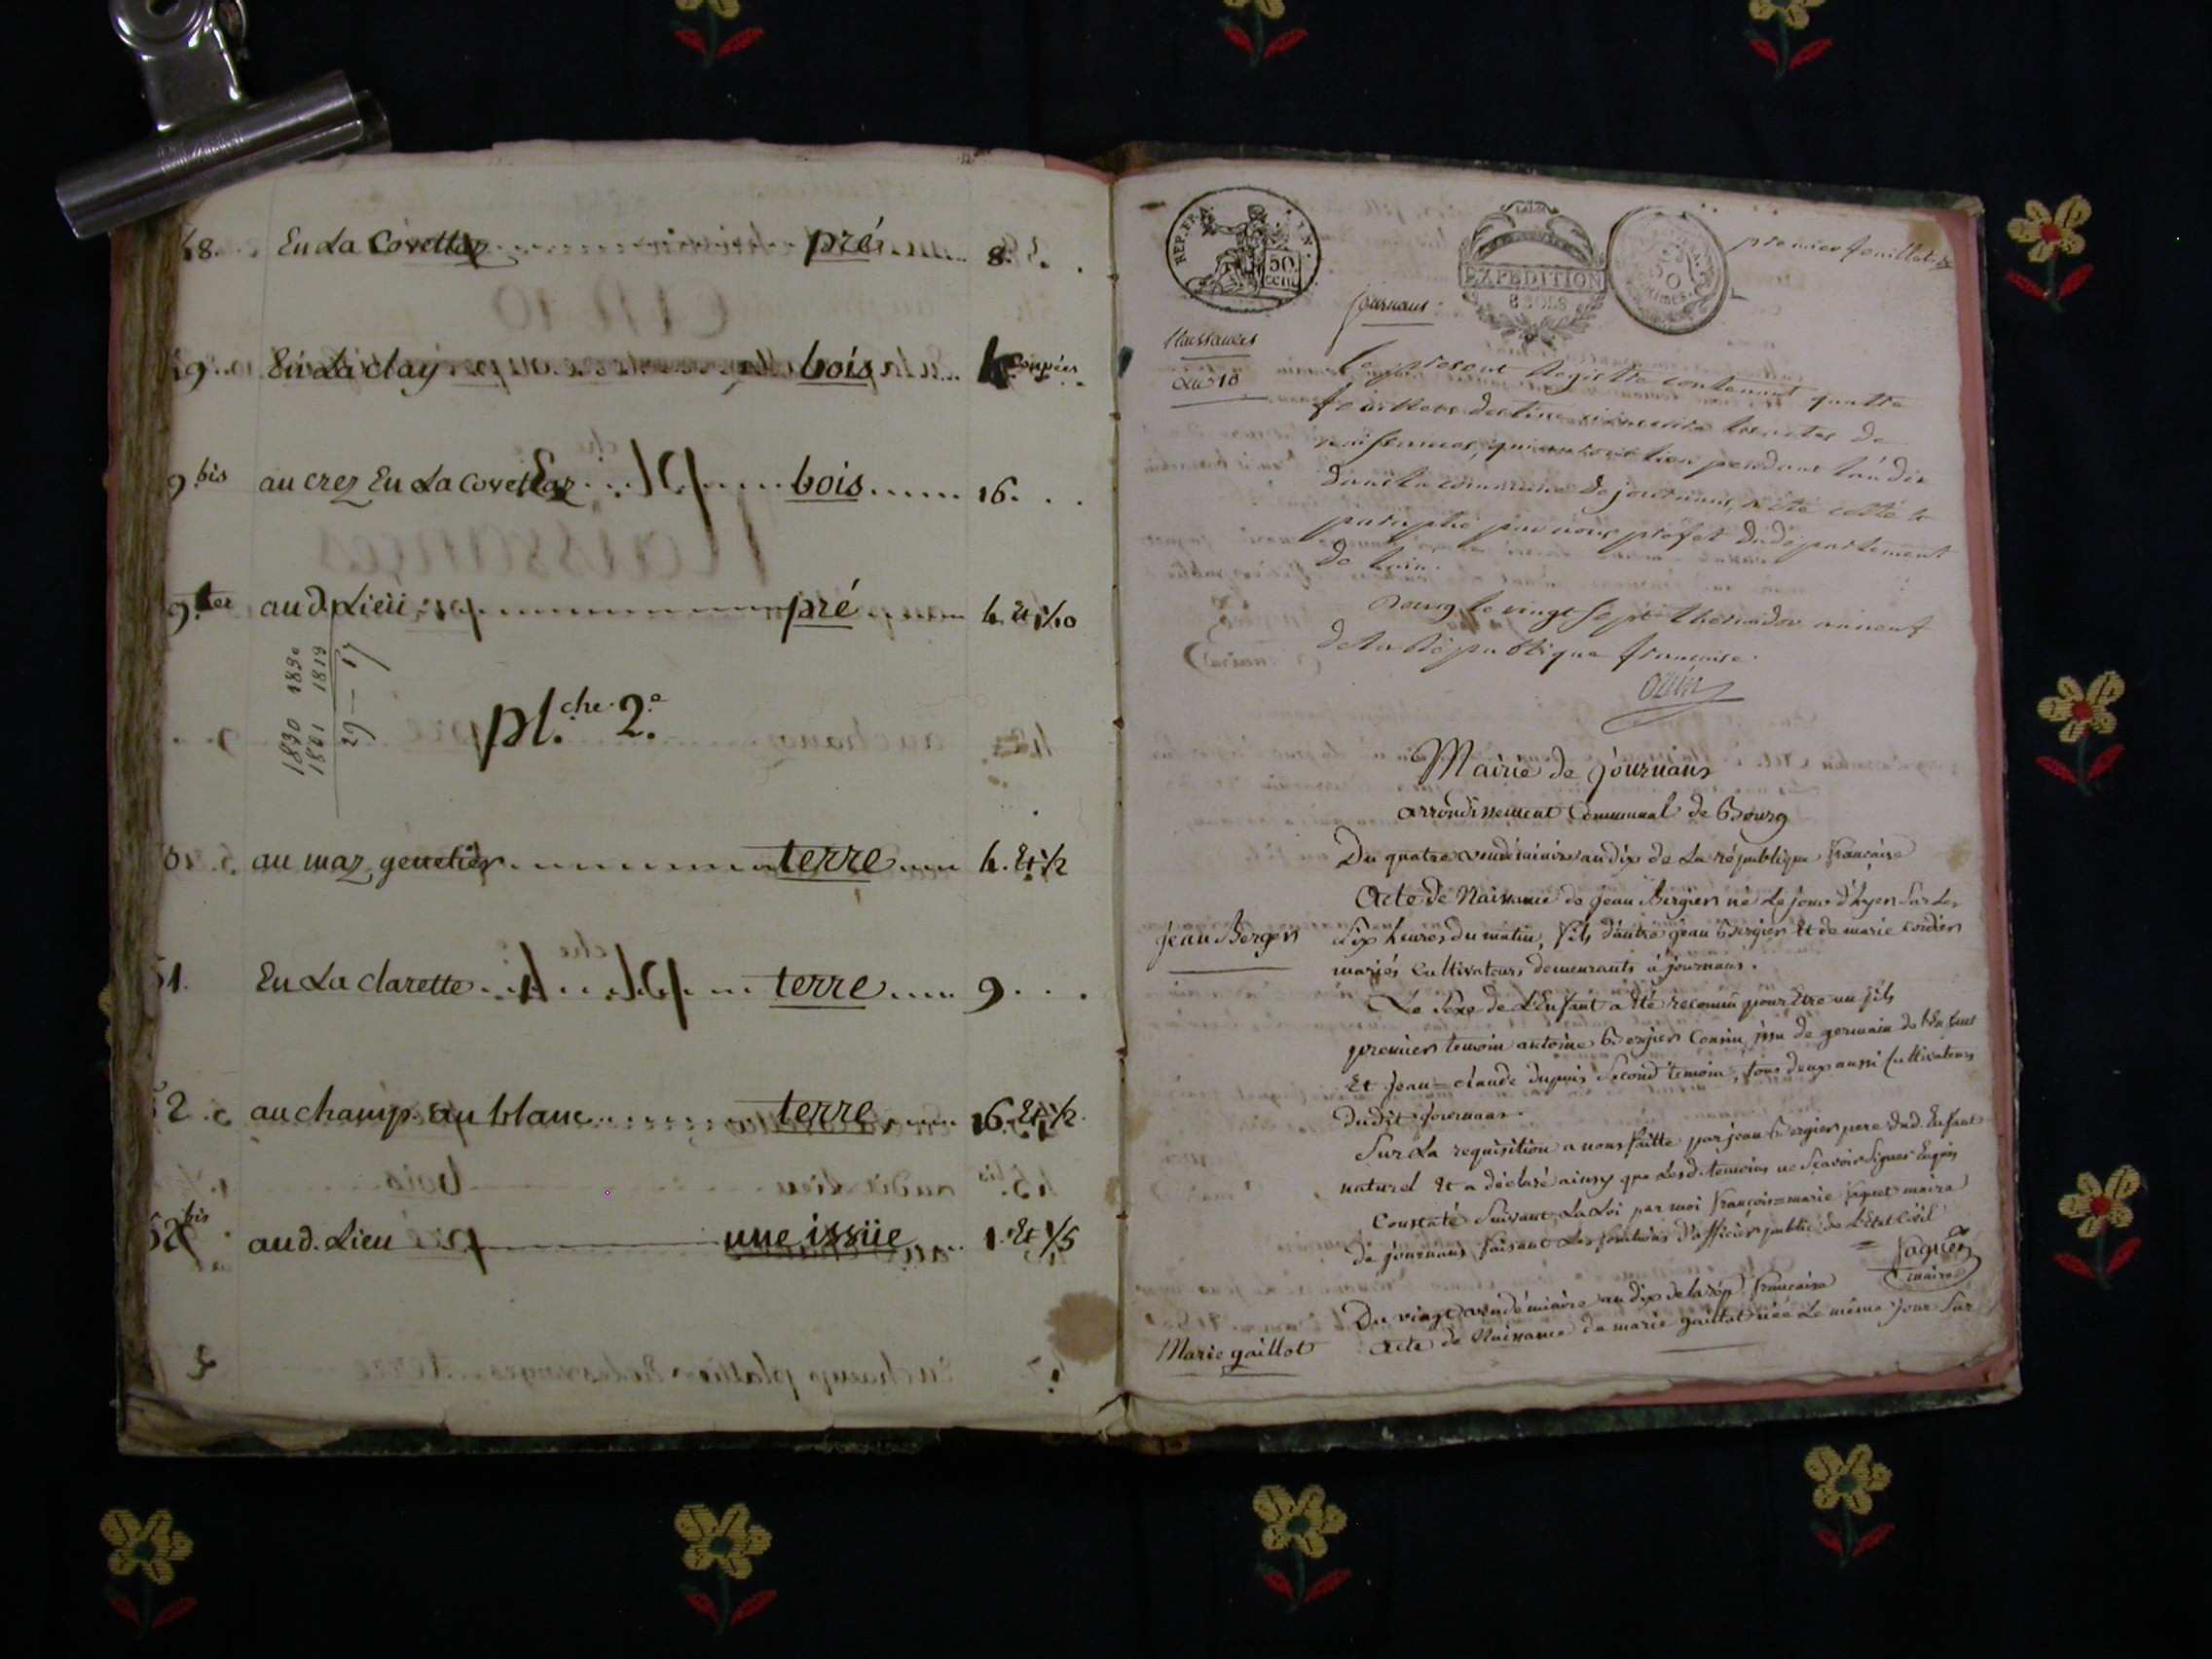 48. En La Covettaz pré 8.
49 En La clay bois 4 coupées
9 bis au crez En La Covettaz bois 16.
9 ter au d. Lieu pré 4. Et 1/10
1830 1830
1801 1819
29 — 17
pl.che 2.e
au maz genetier terre 4. Et 1/2
51. En La clarette terre 9
52. au champ au blanc terre 16. Et 1/2
52 bis au d. Lieu une issüe 1. Et 1/5
REP. FRA. UN.
50 CENT.
EXPEDITION
8 SOLS
50
premier feuillet
Journans
Naissances
an 10
Le présent Registre contenant quatre
feuillets destiné à inscrire les actes de
naissances, qui auront lieu pendant l'an dix
dans la commune de journans, a été cotté &
paraphé par nous préfet du département
de Lain.
Bourg le vingt sept thermidor an neuf
de la République française.
Ozun
Mairie de Journans
arrondissement Communal de Bourg
Du quatre vendémiaire an dix de La république française
Jean Bergier
Acte de Naissance de jean Bergier né Le jour d'hyer Sur Les
Six heures du matin, fils d'autre jean Bergier Et de marie Cordier
mariés Cultivateurs demeurants à journans.
Le Sexe de L'Enfant a Eté reconnu pour Etre un fils
premier temoin antoine Bergier Cousin issu de germain de L'Enfant
Et Jean=claude dupuis Second temoin, tous deux aussi Cultivateurs
dudit journans.
Sur La requisition a nous faitte par jean Bergier pere dud. Enfant
naturel Et a déclaré ainsy que Lesd. temoins ne Scavoir Signer Enquis
Constaté Suivant La Loi par moi François=marie paquet maire
de journans faisant Les fonctions d'officier public de L'Etat Civil
paquet
maire
Du vingt vendémiaire an dix de la rép. francaise
Marie gaillot
Acte de Naissance de marie gaillot née Le même jour Sur